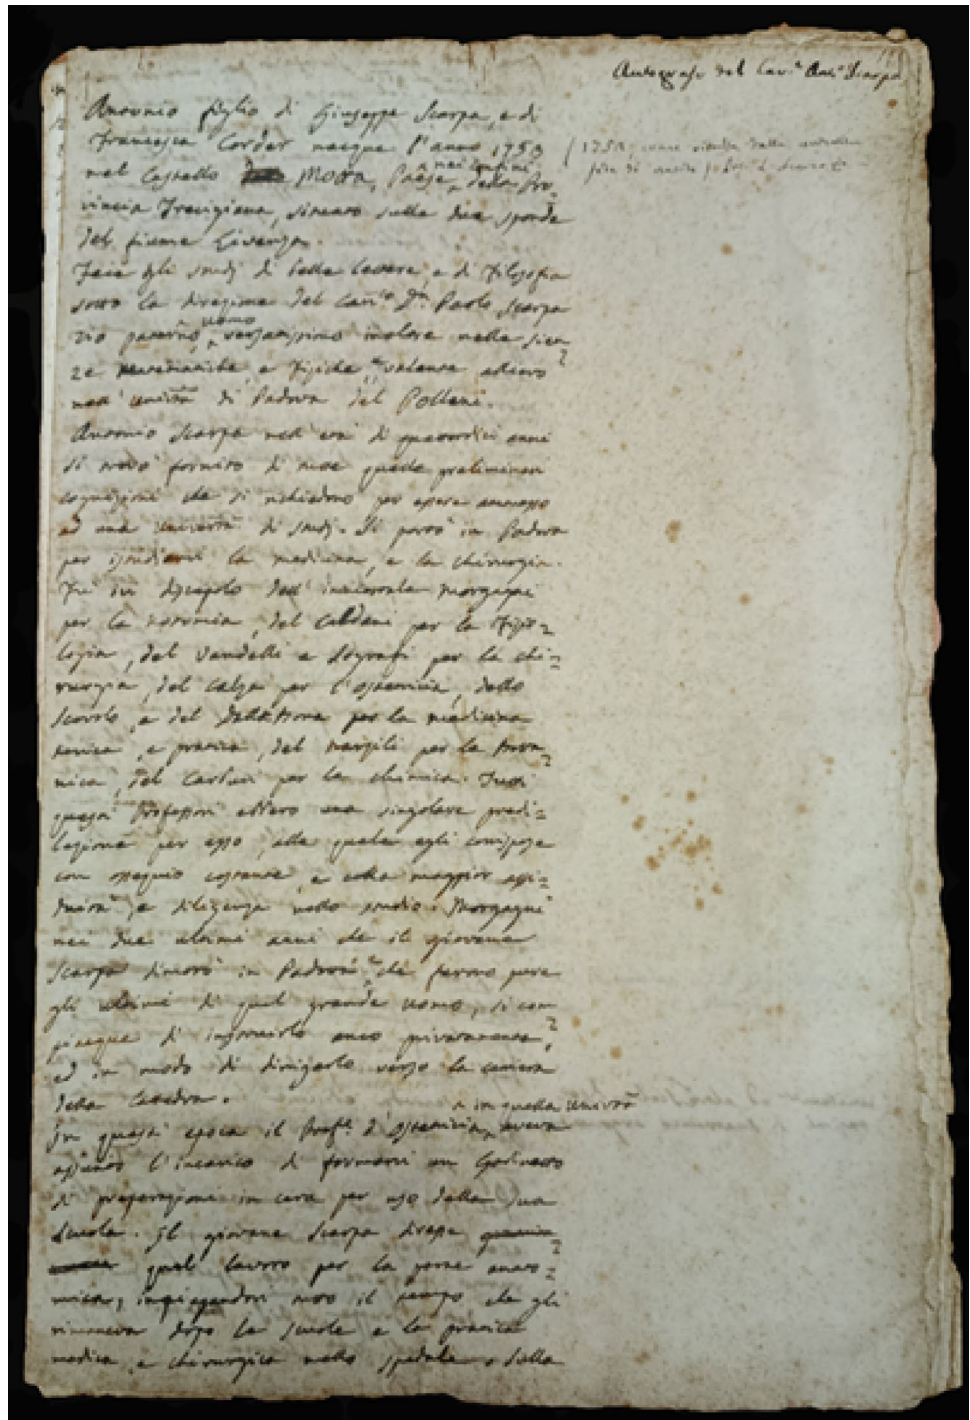 Autografo del Cav.e Ant.o Scarpa
Antonio figlio di Giuseppe Scarpa, e di
Francesca Corder nacque l'anno 1750
nel Castello Motta, Paese nei confini della Pro
vincia Trevigiana, situato sulle due sponde
del fiume Livenza.
Fece gli studj di belle lettere, e di Filosofia
sotto la direzione del Can.co Dn. Paolo Scarpa
zio paterno uomo versatissimo inoltre nelle Scien
ze e Fisiche e valente allievo
nell' Univtà di Padova del Polleni.
Antonio Scarpa nell' età di quattordici anni
si trovò fornito di tutte quelle preliminari
cognizioni che si richiedono per essere ammesso
ad una Università di Studj. Si portò in Padova
per istudiarvi la medicina, e la chirurgia.
Fu ivi discepolo dell' immortale Morgagni
per la notomia, del Caldani per la Fisio=
logia, del Vandelli e Sografi per la chi=
rurgia, del Calza per l'ostetricia, dello
Scovolo, e del Dalla Bona per la medicina
teorica, e pratica, del Marsili per la Bota
nica, del Carburi per la chimica. Tutti
questi Professori ebbero una singolare predi=
lezione per esso, alla quale egli corrispose
con ossequio costante, e colla maggior assi=
duità, e diligenza nello studio. Morgagni
nei due ultimi anni che il giovane
Scarpa dimorò in Padova, che furono pure
gli ultimi di quel grande uomo, si com
piacque di istruirlo anco privatamente,
ed in modo di dirigerlo verso la carriera
della Cattedra.
In questa epoca il Profr. d'Ostetricia in quella Univtà aveva
assunto l'incarico di formarvi un Gabinetto
di preparazioni in cera per uso della sua
Scuola. Il giovane Scarpa diresse
quel lavoro per la parte anato=
mica, impiegandovi tutto il tempo che gli
rimaneva dopo le scuole e la pratica
medica, e chirurgica nello spedale, e dalla